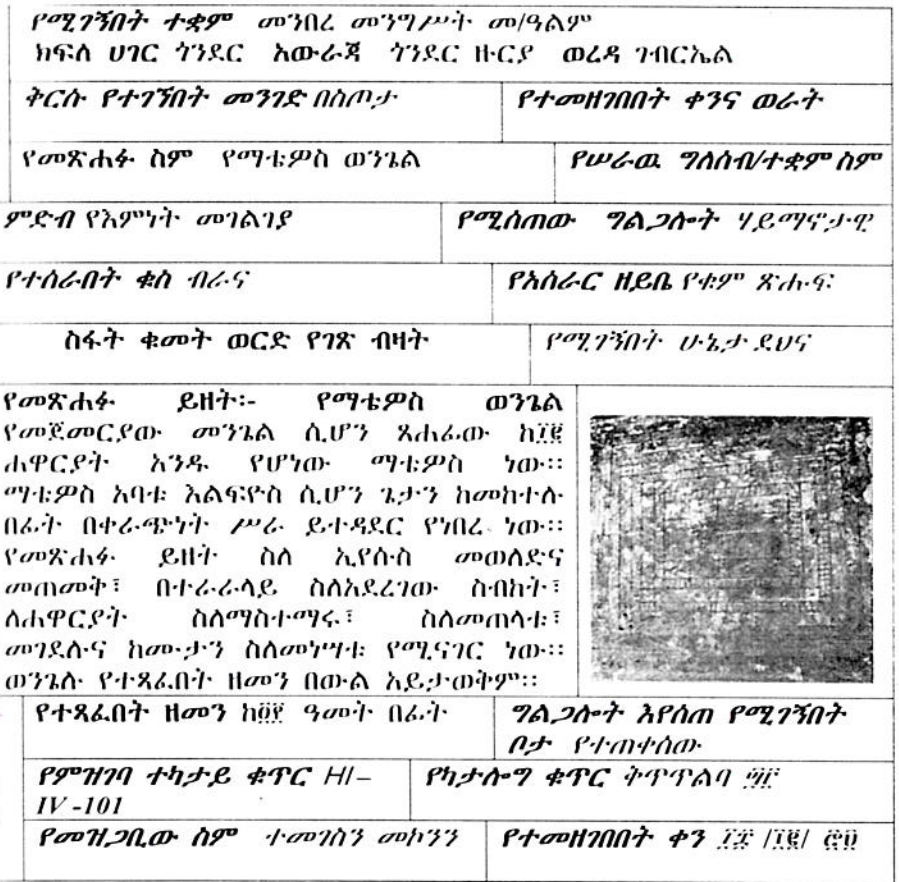 የሚገኝበት ተቋም መንበረ መንግሥት መ/ዓልም
ክፍለ ሀገር ጎንደር አውራጃ ጎንደር ዙርያ ወረዳ ገብርኤል
ቅርሱ የተገኘበት መንገድ በስጦታ
የተመዘገበበት ቀንና ወራት
የመጽሐፉ ስም የማቴዎስ ወንጌል
የሠራዉ ግለሰብ/ተቋም ስም
ምድብ የእምነት መገልገያ
የሚሰጠው ግልጋሎት ሃይማኖታዊ
የተሰራበት ቁስ ብራና
የአሰራር ዘይቤ የቁም ጽሑፍ
ስፋት ቁመት ወርድ የገጽ ብዛት
የሚገኝበት ሁኔታ ደህና
የመጽሐፉ ይዘት፡- የማቴዎስ ወንጌል
የመጀመርያው መንጌል ሲሆን ጸሐፊው ከ፲፪
ሐዋርያት አንዱ የሆነው ማቴዎስ ነው።
ማቴዎስ አባቱ እልፍዮስ ሲሆን ጌታን ከመከተሉ
በፊት በቀራጭነት ሥራ ይተዳደር የነበረ ነው።
የመጽሐፉ ይዘት ስለ ኢየሱስ መወለድና
መጠመቅ፣ በተራራላይ ስለአደረገው ስብከት፣
ለሐዋርያት ስለማስተማሩ፣ ስለመጠላቱ፣
መገደሉና ከሙታን ስለመነሣቱ የሚናገር ነው።
ወንጌሉ የተጻፈበት ዘመን በውል አይታወቅም።
የተጻፈበት ዘመን ዓመት በፊት
ግልጋሎት እየሰጠ የሚገኝበት
ቦታ የተጠቀሰው
የምዝገባ ተካታይ ቁጥር HI–
IV -101
የካታሎግ ቁጥር ቅጥጥልባ
የመዝጋቢው ስም ተመገስን መኮንን
የተመዘገበበት ቀን